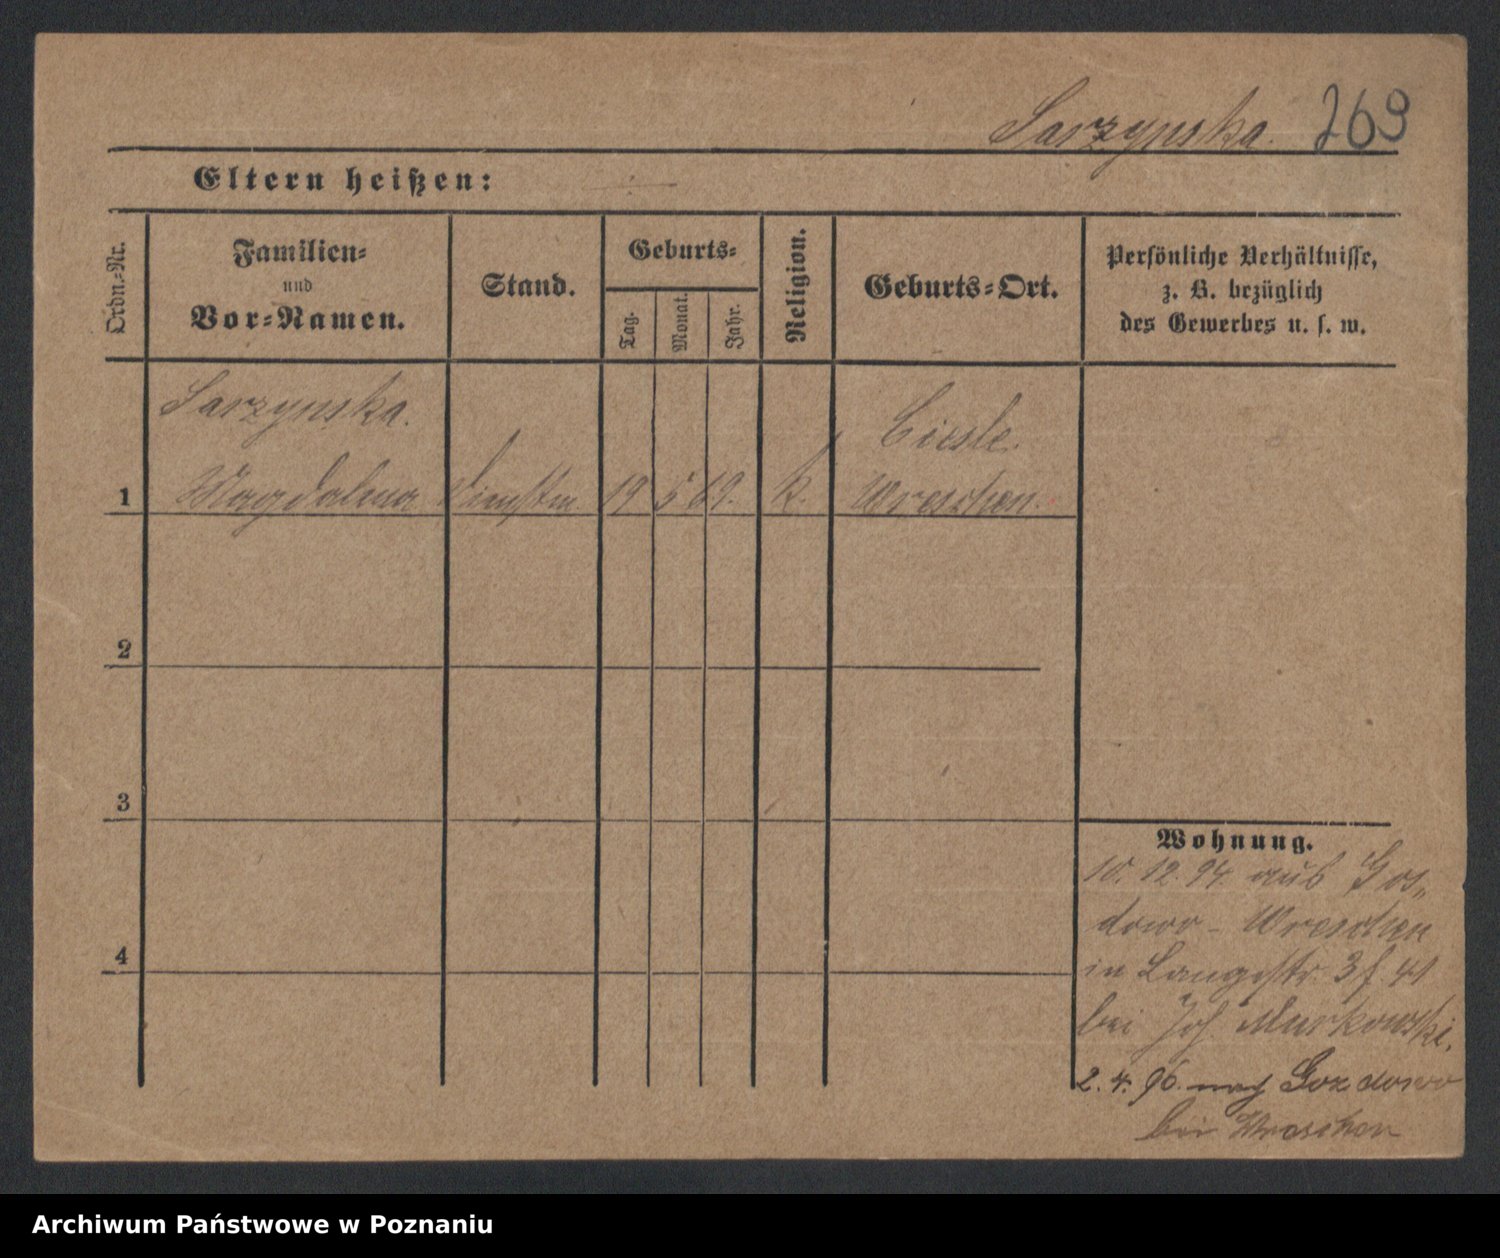 Sarzynska. 269
Eltern heißen:
Ordn.-Nr.
Familien-
und
Vor-Namen.
Stand.
Geburts-
Tag.
Monat.
Jahr.
Religion.
Geburts-Ort.
Persönliche Verhältnisse,
z. B. bezüglich
des Gewerbes u. s. w.
Sarzynska.
Ciesle.
1 Magdalena 19 5 69. k. Wreschen.
2
3
4
Wohnung.
10. 12. 94. aus Gos-
dowo - Wreschen
in Langestr. 3 f. 41
bei Joh. Murkowski.
2. 4. 96. nach Gozdowo
bei Wreschen
Archiwum Państwowe w Poznaniu